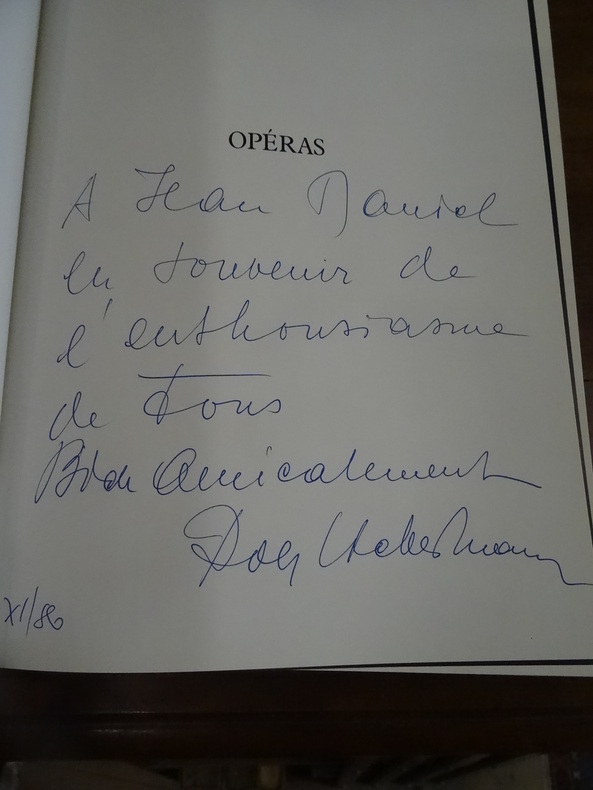 OPÉRAS
A Jean Daniel
en souvenir de
l'enthousiasme
de Tous
Bien Amicalement
XI/86